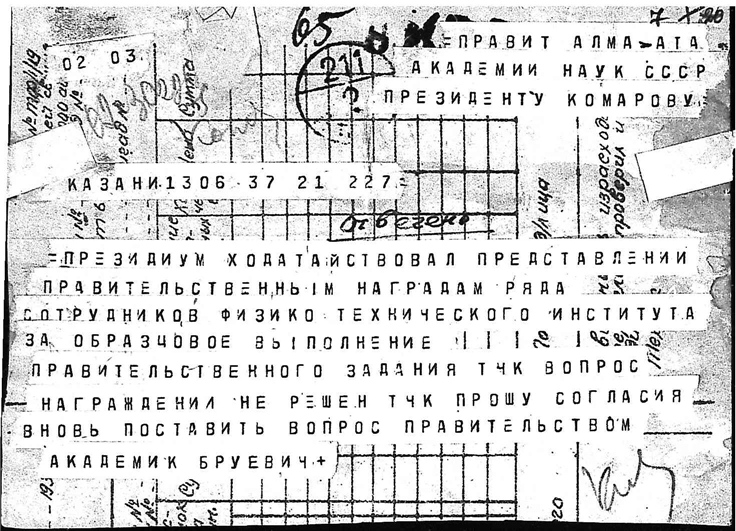 65
7 X
211
=ПРАВИТ АЛМА-АТА
02 03.
АКАДЕМИИ НАУК СССР
ПРЕЗИДЕНТУ КОМАРОВУ=
КАЗАНИ.1306 37 21 227=
Отвечено
=ПРЕЗИДИУМ ХОДАТАЙСТВОВАЛ ПРЕДСТАВЛЕНИИ
ПРАВИТЕЛЬСТВЕННЫМ НАГРАДАМ РЯДА
СОТРУДНИКОВ ФИЗИКО ТЕХНИЧЕСКОГО ИНСТИТУТА
ЗА ОБРАЗЦОВОЕ ВЫПОЛНЕНИЕ
ПРАВИТЕЛЬСТВЕННОГО ЗАДАНИЯ ТЧК ВОПРОС
НАГРАЖДЕНИИ НЕ РЕШЕН ТЧК ПРОШУ СОГЛАСИЯ
ВНОВЬ ПОСТАВИТЬ ВОПРОС ПРАВИТЕЛЬСТВОМ
АКАДЕМИК БРУЕВИЧ+